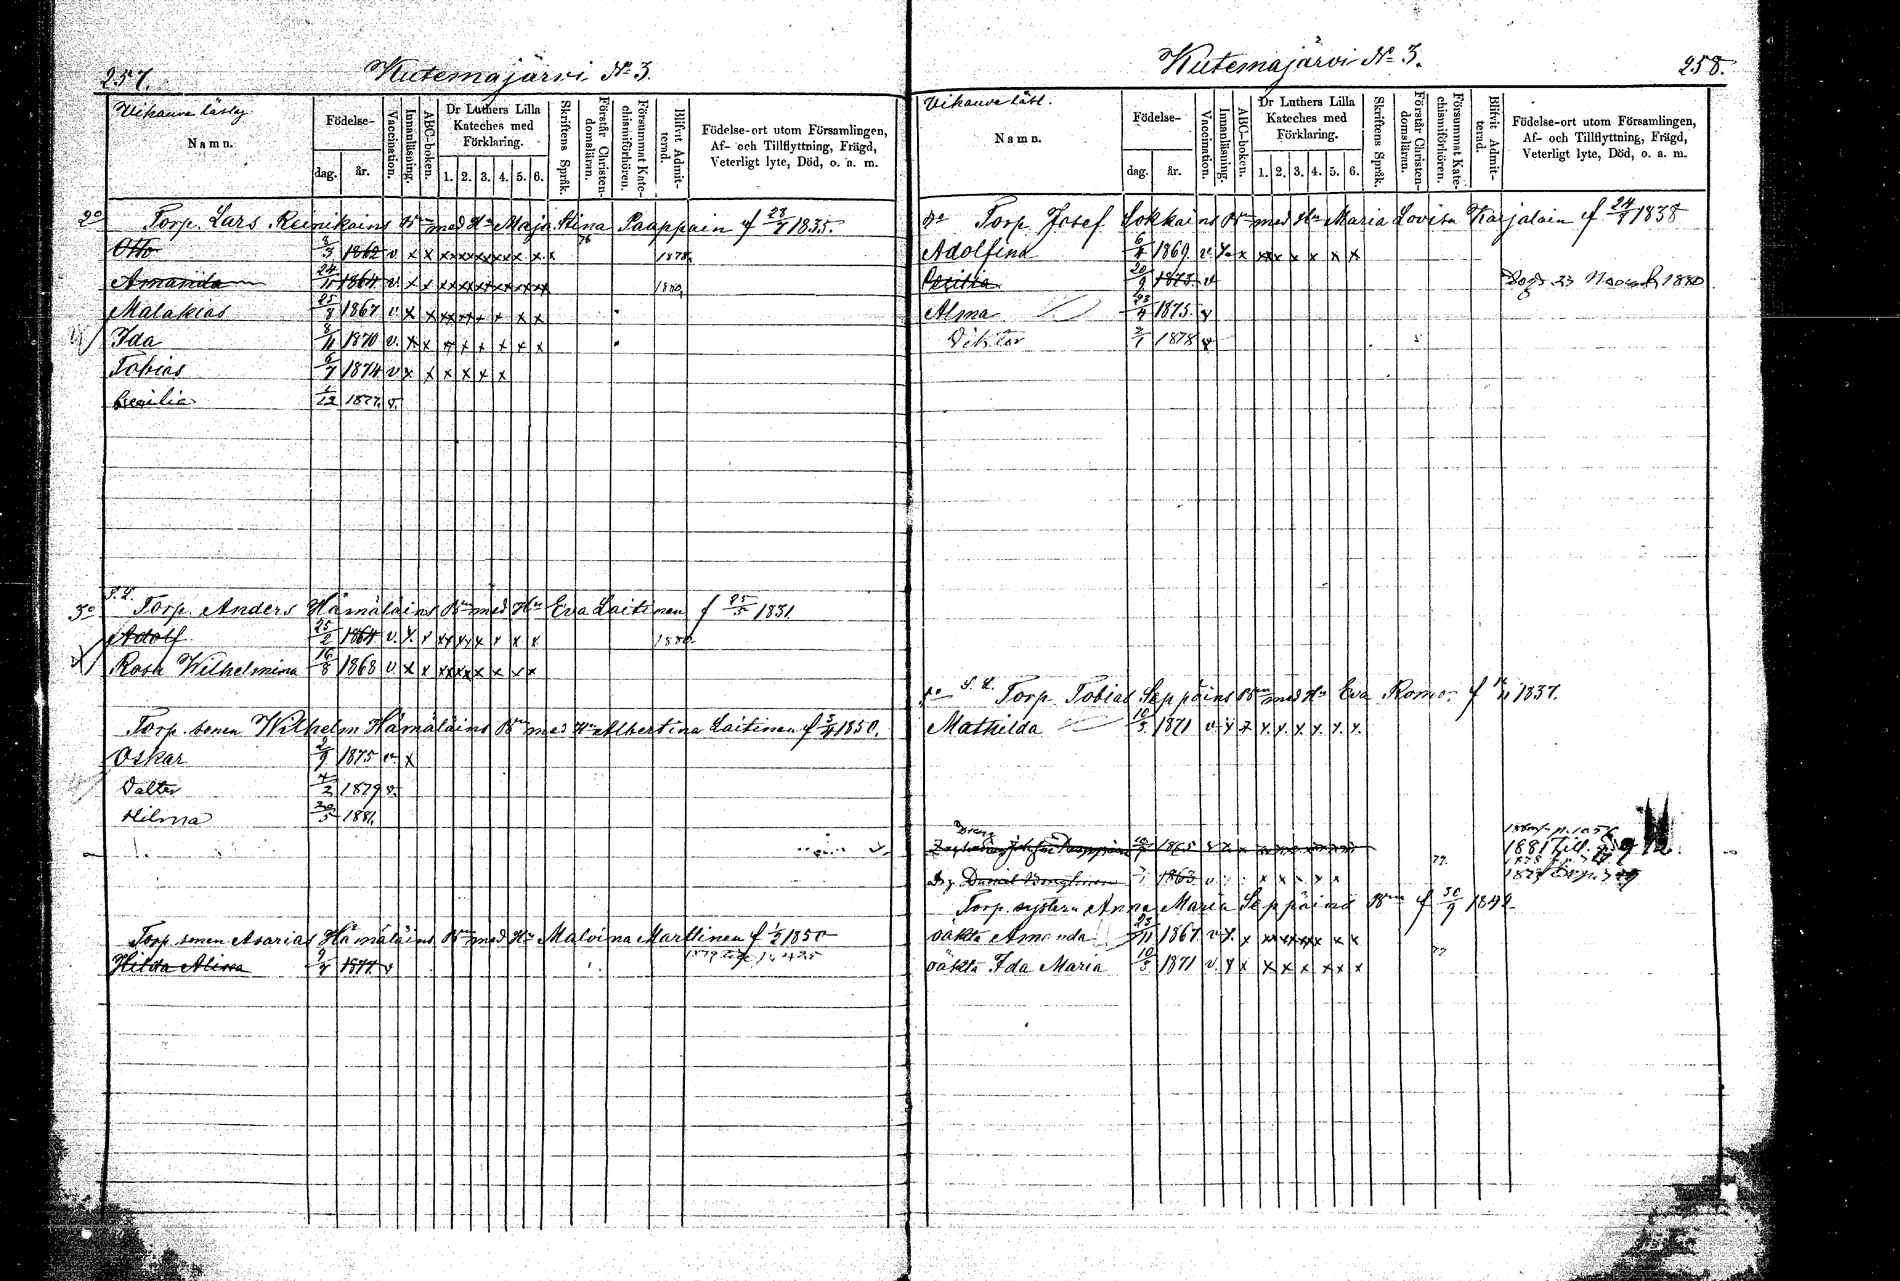 257.
Kutemajärvi No 3.
Vihauva lästeg
Namn.
Födelse-
dag.
år.
Vaccination.
Innanläsning.
ABC-boken.
Dr Luthers Lilla Kateches med Förklaring.
1. 2. 3. 4. 5. 6.
Skriftens Språk.
Förstår Christen-domsläran.
Försummat Kate-chismiförhören.
Blifvit Admit-terad.
Födelse-ort utom Församlingen,
Af- och Tillflyttning, Frägd,
Veterligt lyte, Död, o. a. m.
2o Torp. Lars Reinikains Bn med Hu Maja Stina Paappain f 28/7 1835.
Otto 1862 v x x xx xx xx xx x x x 1878
Amanda 24/11 1864 v. x x xx xx xx xx xx xx 1880
Malakias 25/8 1867 v. x x xx xx x x x x
Ida 8/11 1870 v. x x x x x x x x
Tobias 6/7 1874 v x x x x x x
Cecilia 1/12 1877. v.
3o S. L. Torp. Anders Hämäläins Bn med Hu Eva Laitinen f 25/5 1831.
Adolf 25/2 1864 v. x. x xx xx x x x x 1880
Rosa Wilhelmina 16/8 1868 v x x xx xx x x x x
Torp. sonen Wilhelm Hämäläins Bn med Hu Albertina Laitinen f 3/4 1850.
Oskar 2/9 1875 v. x
Valter 4/2 1879 v.
Hilma 30/5 1881.
Torp. sonen Asarias Hämäläins Bn med Hu Malvina Marttinen f 1/2 1850
Hilda Alina 9/4 1877 v
258.
Kutemajärvi No 3.
Vihauva läst.
Namn.
Födelse-
dag.
år.
Vaccination.
Innanläsning.
ABC-boken.
Dr Luthers Lilla Kateches med Förklaring.
1. 2. 3. 4. 5. 6.
Skriftens Språk.
Förstår Christen-domsläran.
Försummat Kate-chismiförhören.
Blifvit Admit-terad.
Födelse-ort utom Församlingen,
Af- och Tillflyttning, Frägd,
Veterligt lyte, Död, o. a. m.
Torp. Josef Lokkains Bn med Hu Maria Lovisa Karjalain f 24/8 1838
Adolfina 1869. v. x x xx x x x x
Cecilia 20/9 1873. v 23 1880
Alma 1875. v
Viktor 3/1 1878 v
S. L. Torp. Tobias Seppäins Bn med Hu Eva Romo f 1837.
Mathilda 10/3 1871 v x x x. x. x. x. x. x.
Dreng
1865
1881
Daniel 1863 v x x x x x 77.
Torp. system Anna Maria Seppäins Bn f 30/9 1842
väkta Amanda 23/11 1867. v x. x xx xx xx x x
väkta Ida Maria 10/3 1871 v. x x x x x x x x 77